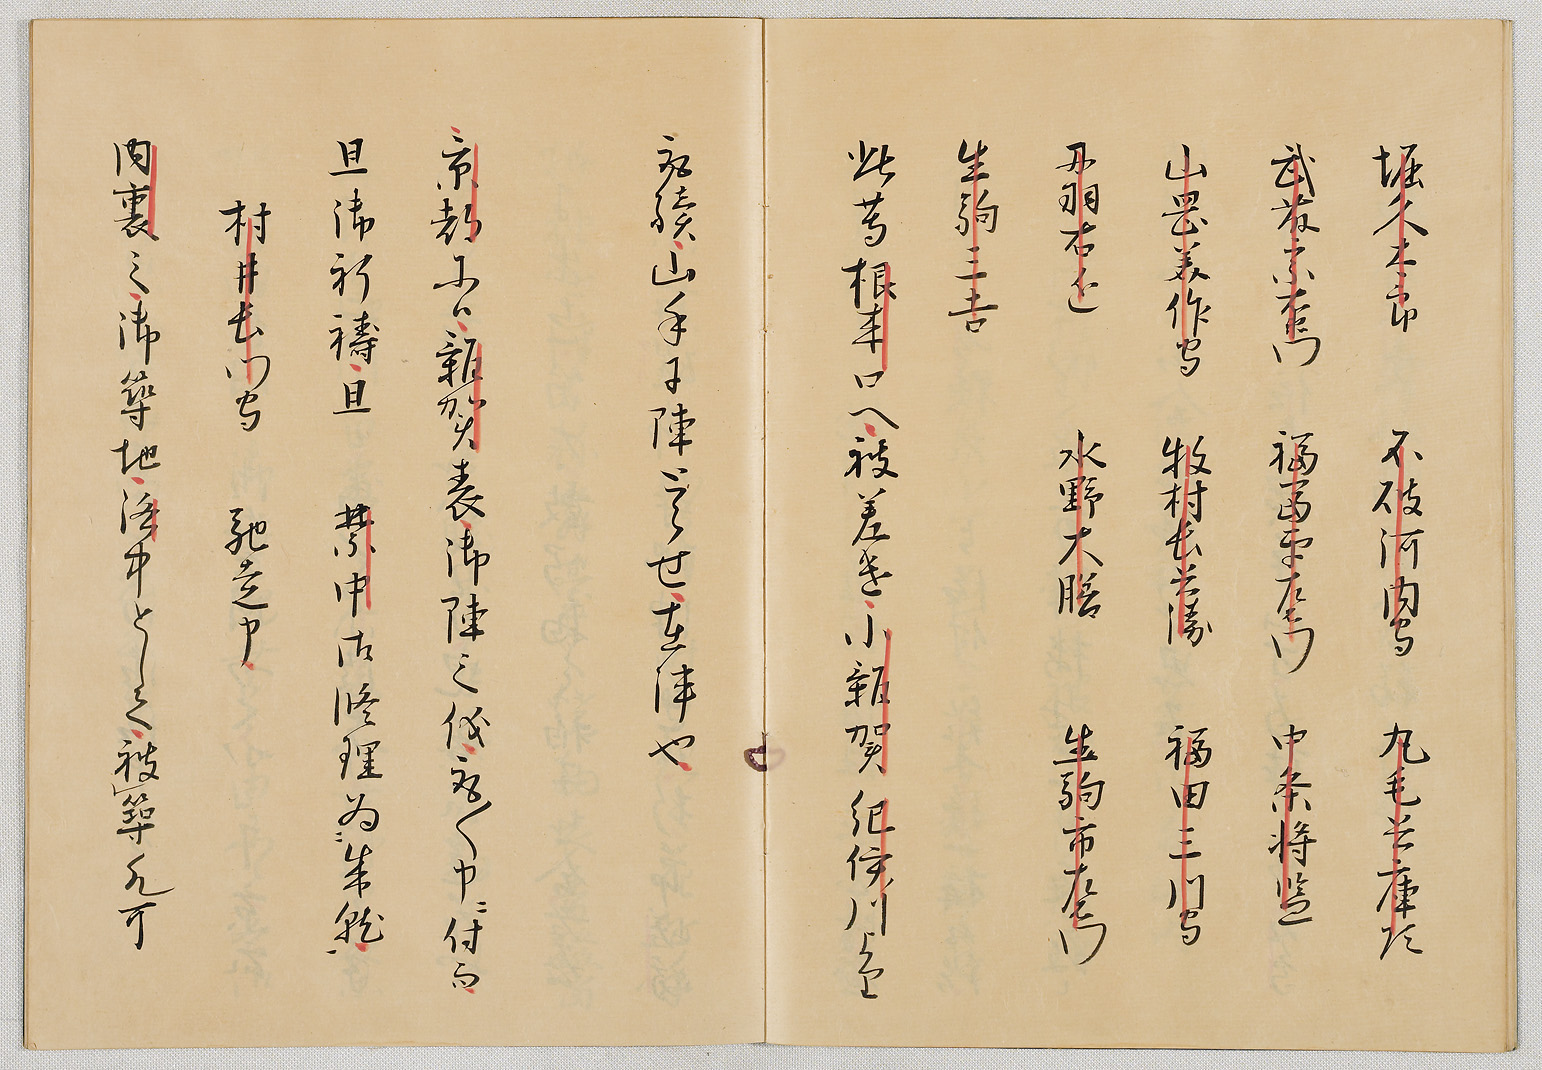 堀久太郎　不破河内守　丸毛兵庫頭
武藤宗右衛門　福富平左衛門　中条将監
山岡美作守　牧村長兵衛　福田三川守
丹羽右近　水野大膳　生駒市左衛門
生駒三吉
此等根来口へ被差遣小雑賀紀伊川上
取続山手に陣とらせ在陣也
京都にハ雑賀表御陣之儀取〱申ニ付而
且御祈祷且　禁中御修理為ニ成就一
村井長門守　馳走申
内裏之御築地洛中として被築尤可